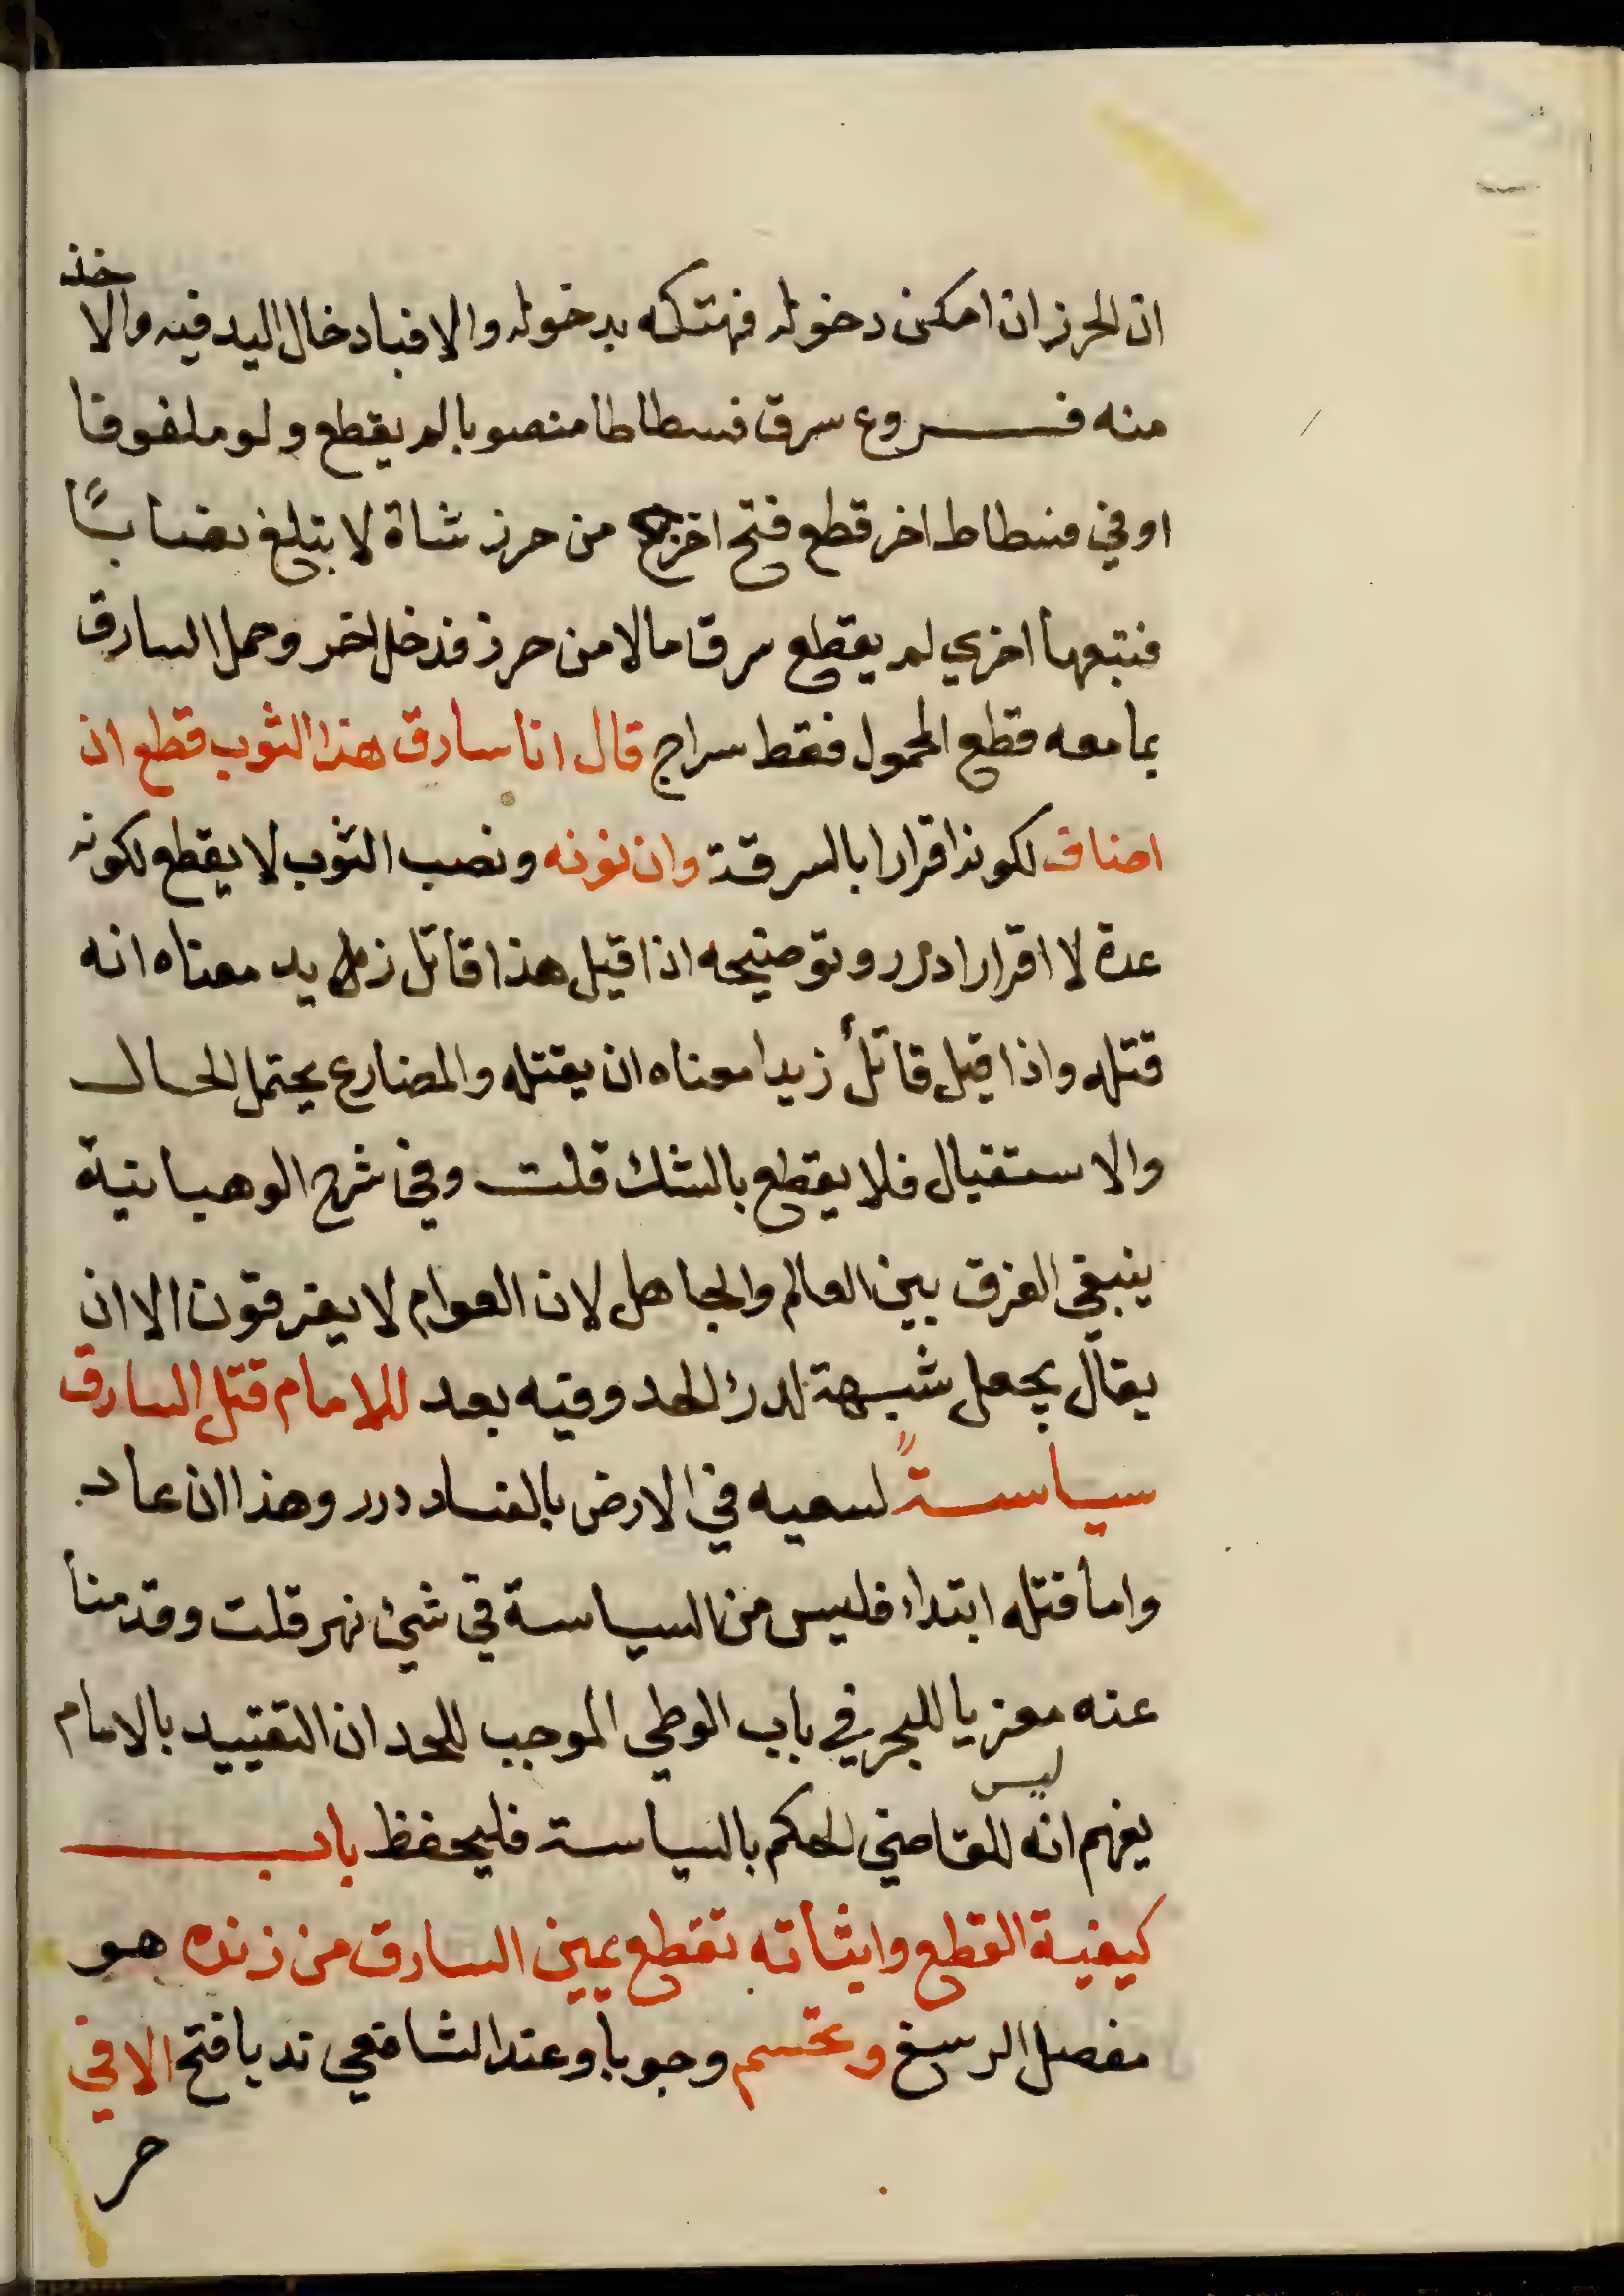 ان الحرز ان امكن دخوله فهتكه بدخوله والا فبادخال اليد فيه والاخذ
منه فروع سرق فسطاطا منصوبا لم يقطع ولو ملفوفا
او في فسطاط اخر قطع فتح اخرج من حرز شاة لا تبلغ نصابًا
فتبعها اخري لم يقطع سرق مالا من حرز فدخل اخر وحمل السارق
بما معه قطع المحمول فقط سراج قال انا سارق هذا الثوب قطع ان
اضاف لكونه اقرارا بالسرقة وان نونه ونصب الثوب لا يقطع لكونه
عدة لا اقرارا درر وتوضيحه اذا قيل هذا قاتل زيد معناه انه
قتله واذا قيل قاتلٌ زيدا معناه ان يقتله والمضارع يحتمل الحال
والاستقبال فلا يقطع بالشك قلت وفي شرح الوهبانية
ينبغي الفرق بين العالم والجاهل لان العوام لا يفرقون الا ان
يقال يجعل شبهة لدرء الحد وفيه بعد للامام قتل السارق
سياسةً لسعيه في الارض بالفساد درر وهذا ان عاد
واما قتله ابتداء فليس من السياسة في شئ نهر قلت وقدمنا
عنه معزيا للبحر في باب الوطي الموجب للحد ان التقييد بالامام
يفهم انه ليس للقاضي الحكم بالسياسة فليحفظ باب
كيفية القطع واثباته تقطع يمين السارق من زنده هو
مفصل الرسغ وتحسم وجوبا وعند الشافعي ندبا فتح الا في
حر